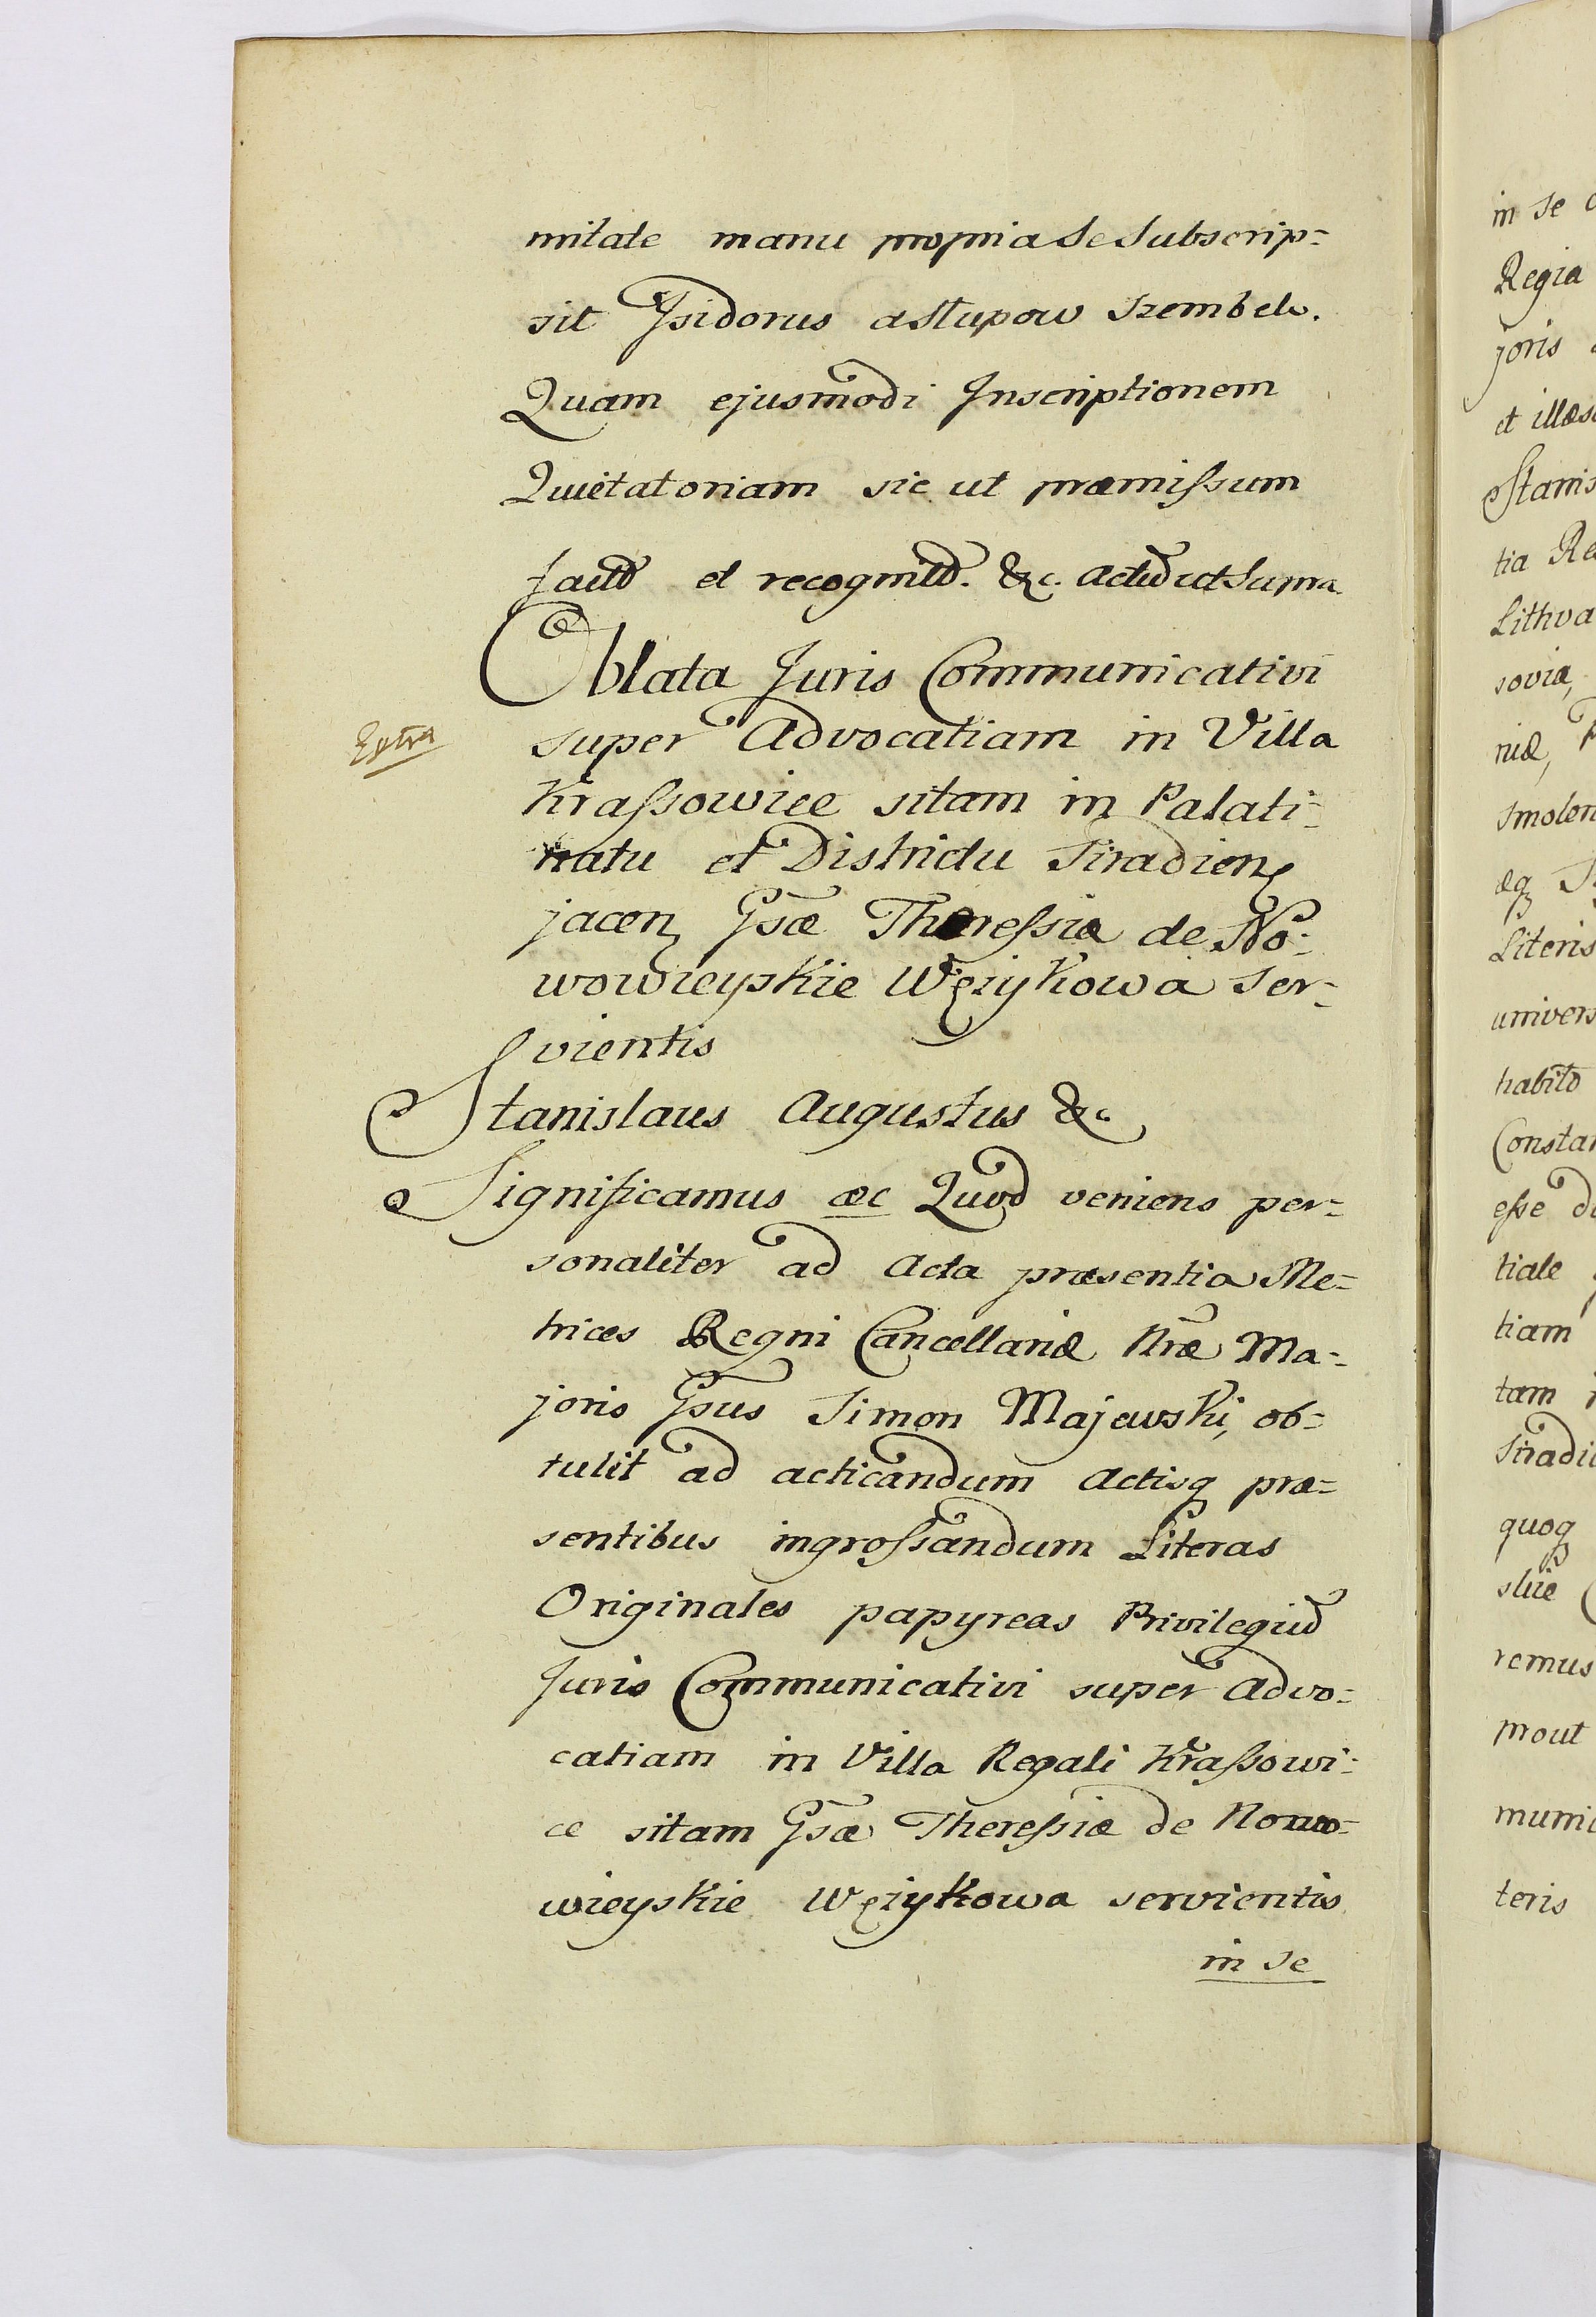 mitate manu propria Se Subscrip=
sit Jsidorus a Slupow Szembek.
Quam ejusmodi Jnscriptionem
Quietatoriam sic ut præmiſsum
et &c. ut Supra
Oblata Juris Communicativi
Extra
super Advocatiam in Villa
Kraſsowice sitam in Palati=
natu et Districtu Siradien
jacen Gsæ Thereſsiæ de No=
wowieyskie Wężykowa Ser=
vientis
Stanislaus Augustus &c
Significamus &c Quod veniens per=
sonaliter ad Acta præsentia Me=
trices Regni Cancellariæ Nræ Ma=
joris Gsus Simon Majewski, ob=
tulit ad acticandum Actisq præ=
sentibus ingroſsandum Literas
Originales papyreas Privilegiū
Juris Communicativi super Advo=
catiam in Villa Regali Kraſsowi=
ce sitam Gsæ Thereſsiæ de Nowo=
wieyskie Wężykowa servientis
in se
in Se
Regia
joris
et illæs
Stanis
tia Re
Lithva
soviæ,
niæ,
Smolen
æq
Literis
univers
habitō
Constan
eſse
tiale
tiam
tam
Siradi
quoq
remus
prout
muni
teris